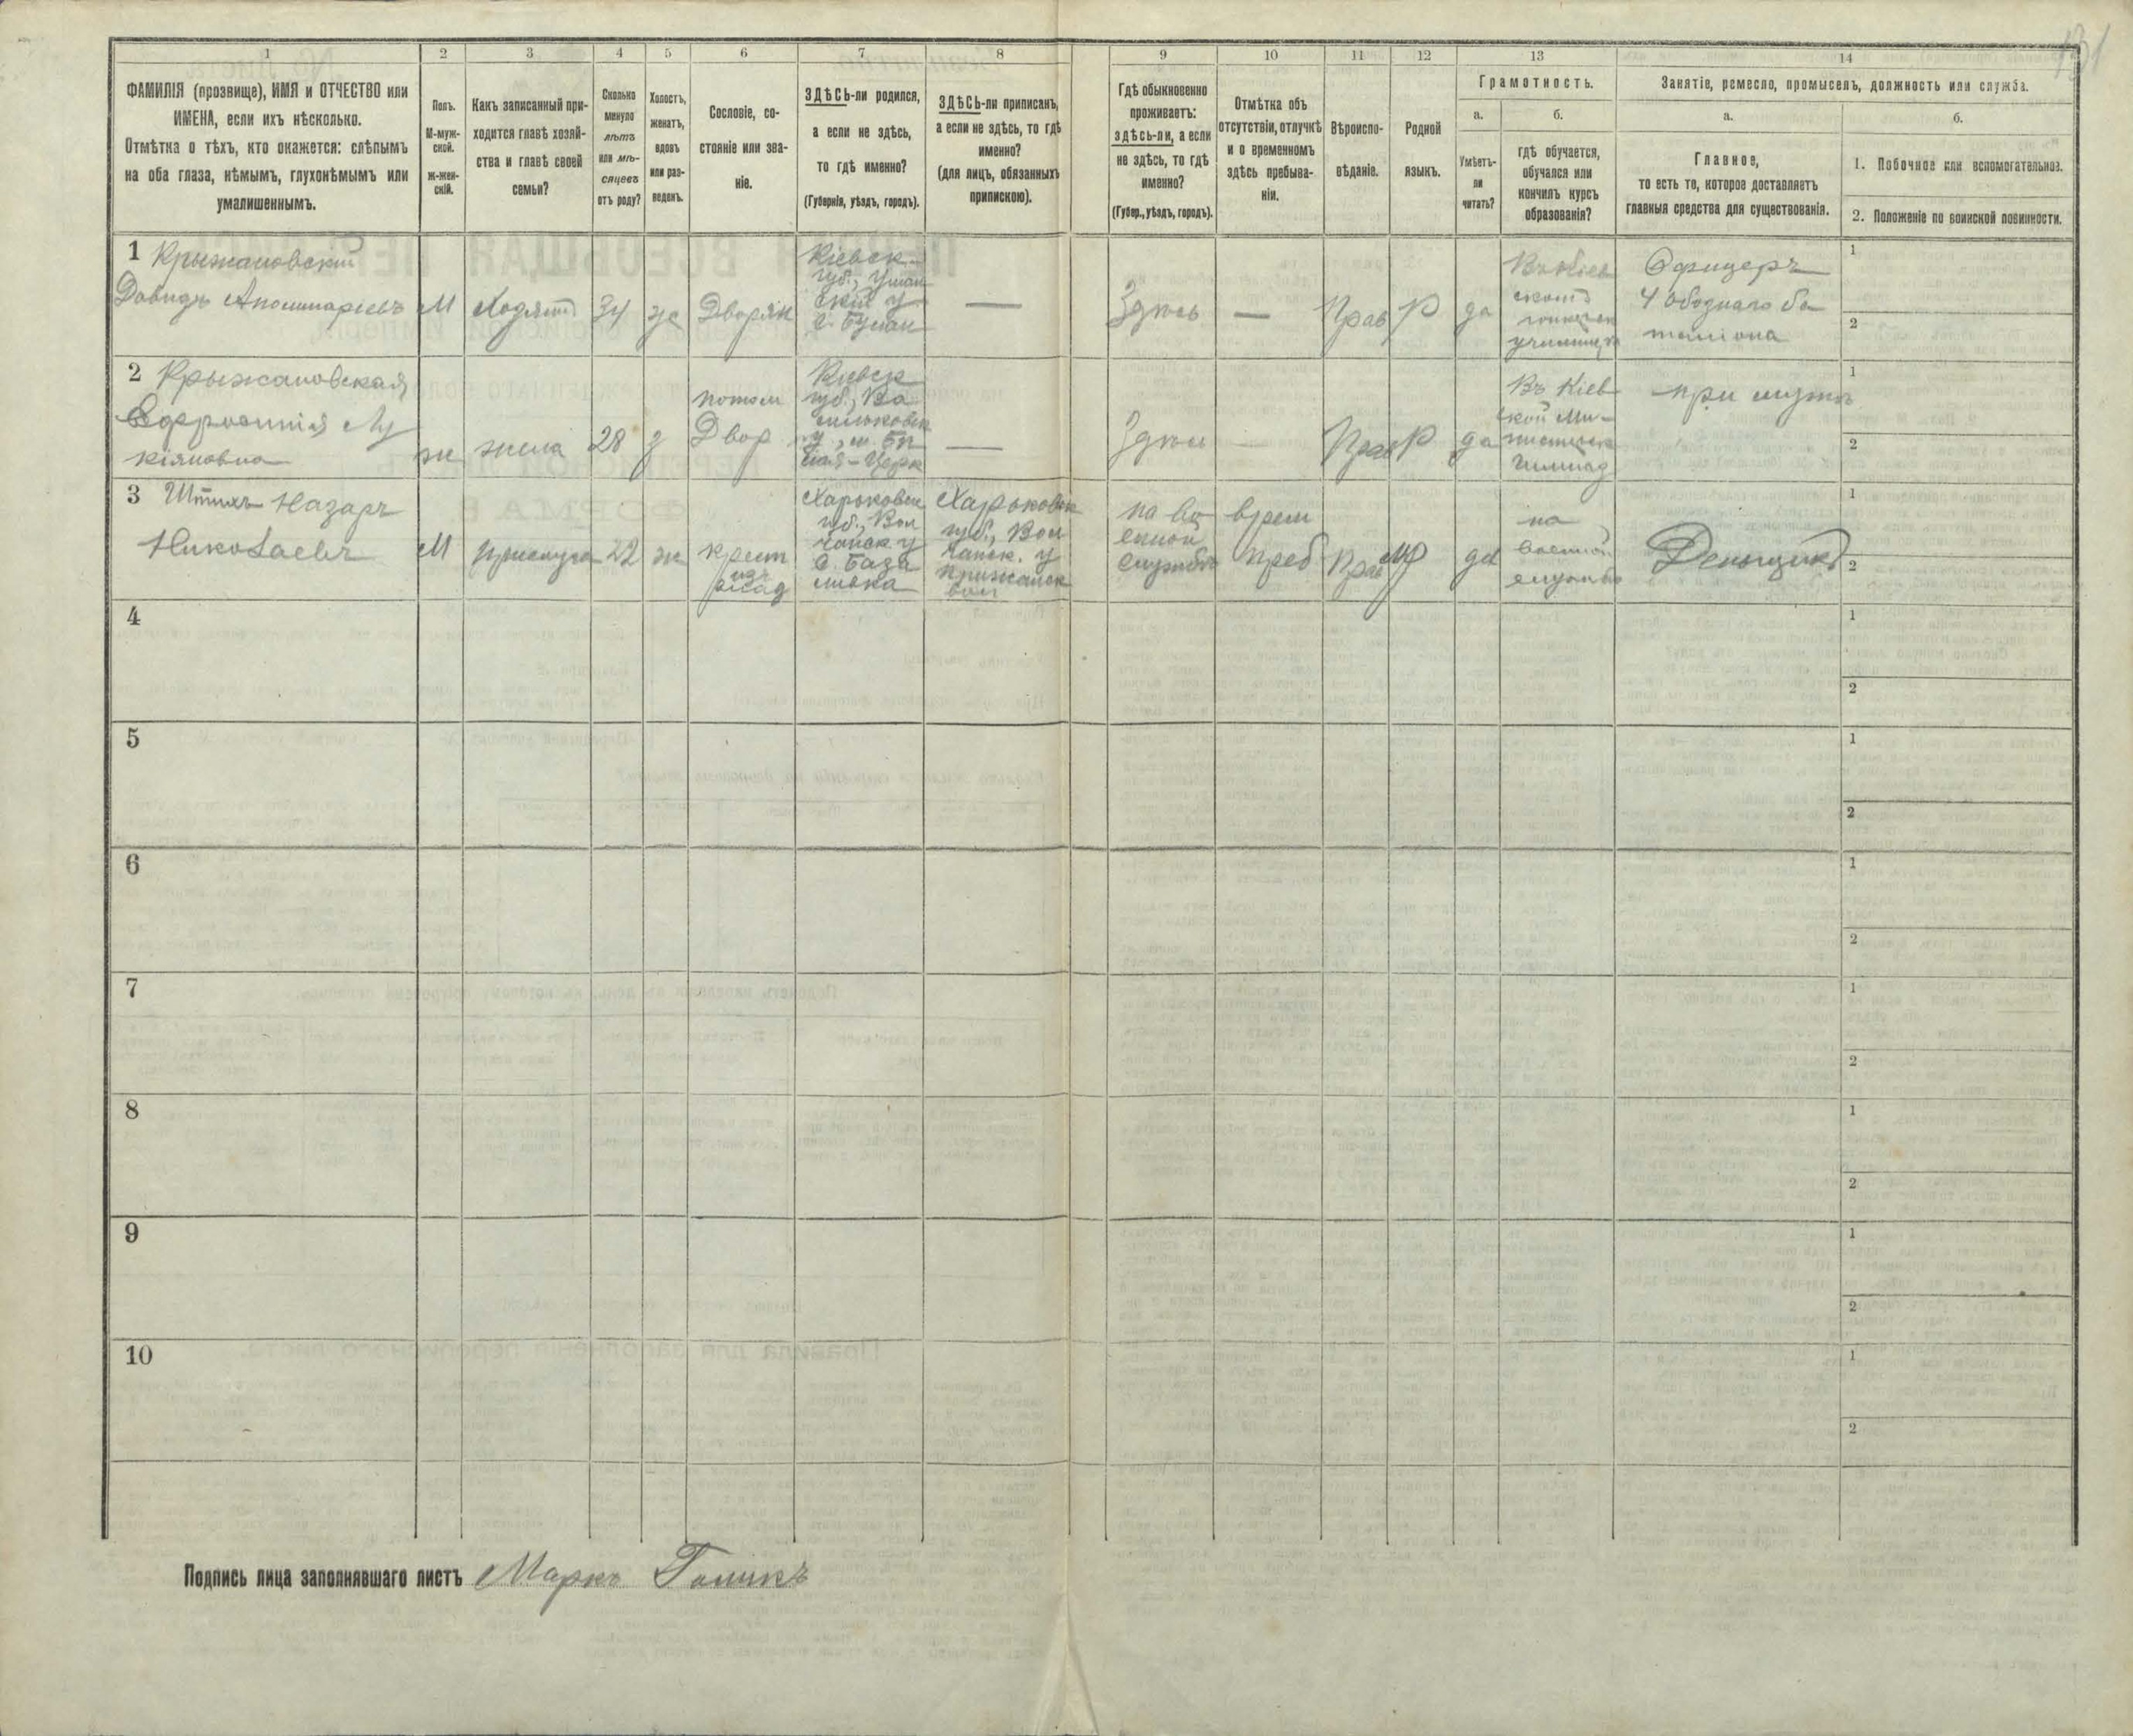 131
1 2 3 4 5 6 7 8 9 10 11 12 13 14
ФАМИЛІЯ (прозвище), ИМЯ и ОТЧЕСТВО или
ИМЕНА, если ихъ нѣсколько.
Отмѣтка о тѣхъ, кто окажется: слѣпымъ
на оба глаза, нѣмымъ, глухонѣмымъ или
умалишеннымъ.
Полъ.
М-муж-
ской.
Ж-жен-
скій.
Какъ записанный при-
ходится главѣ хозяй-
ства и главѣ своей
семьи?
Сколько
минуло
лѣтъ
или мѣ-
сяцевъ
отъ роду?
Холостъ,
женатъ,
вдовъ
или раз-
веденъ.
Сословіе, со-
стояніе или зва-
ніе.
ЗДѢСЬ-ли родился,
а если не здѣсь,
то гдѣ именно?
(Губернія, уѣздъ, городъ).
ЗДѢСЬ-ли приписанъ,
а если не здѣсь, то гдѣ
именно?
(для лицъ, обязанныхъ
припискою).
Гдѣ обыкновенно
проживаетъ:
здѣсь-ли, а если
не здѣсь, то гдѣ
именно?
(Губер., уѣздъ, городъ).
Отмѣтка объ
отсутствіи, отлучкѣ
и о временномъ
здѣсь пребыва-
ніи.
Вѣроиспо-
вѣданіе.
Родной
языкъ.
Грамотность.
а.
Умѣетъ-
ли
читать?
б.
гдѣ обучается,
обучался или
кончилъ курсъ
образованія?
Занятіе, ремесло, промыселъ, должность или служба.
а.
Главное,
то есть то, которое доставляетъ
главныя средства для существованія.
б.
1. Побочное или вспомогательное.
2. Положеніе по воинской повинности.
1 Крыжановскій
Давидъ Аполинаріевъ
М
Хозяинъ
34
ж
Дворян
Кіевск
губ., Уман
скій у
г. Умань
—
Здѣсь
—
Прав
Р
да
Въ Кіев
училищѣ
Офицеръ
4 Обознаго ба
таліона
1
2
2 Крыжановская
Ефросинія Лу
кіяновна
ж
жена
28
з
потом
Двор
Кіевск
губ., Ва
сильковск
у., м. Бѣ
лая-Церк
—
Здѣсь
—
Прав
Р
да
Въ Кіев
ской Ми-
нистерск
Гимназ
при мужѣ
1
2
3 Штихъ Назаръ
Николаевъ
М
прислуга
22
ж
крест
Харьковск
губ., Вол
чанск. у
с. База
ліевка
Харьковск
губ., Вол
чанск. у
вол
на во
енной
службѣ
врем
преб
Прав
МР
да
на
военной
службѣ
Деньщикъ
1
2
4
1
2
5
1
2
6
1
2
7
1
2
8
1
2
9
1
2
10
1
2
Подпись лица заполнявшаго листъ Маркъ Голикъ